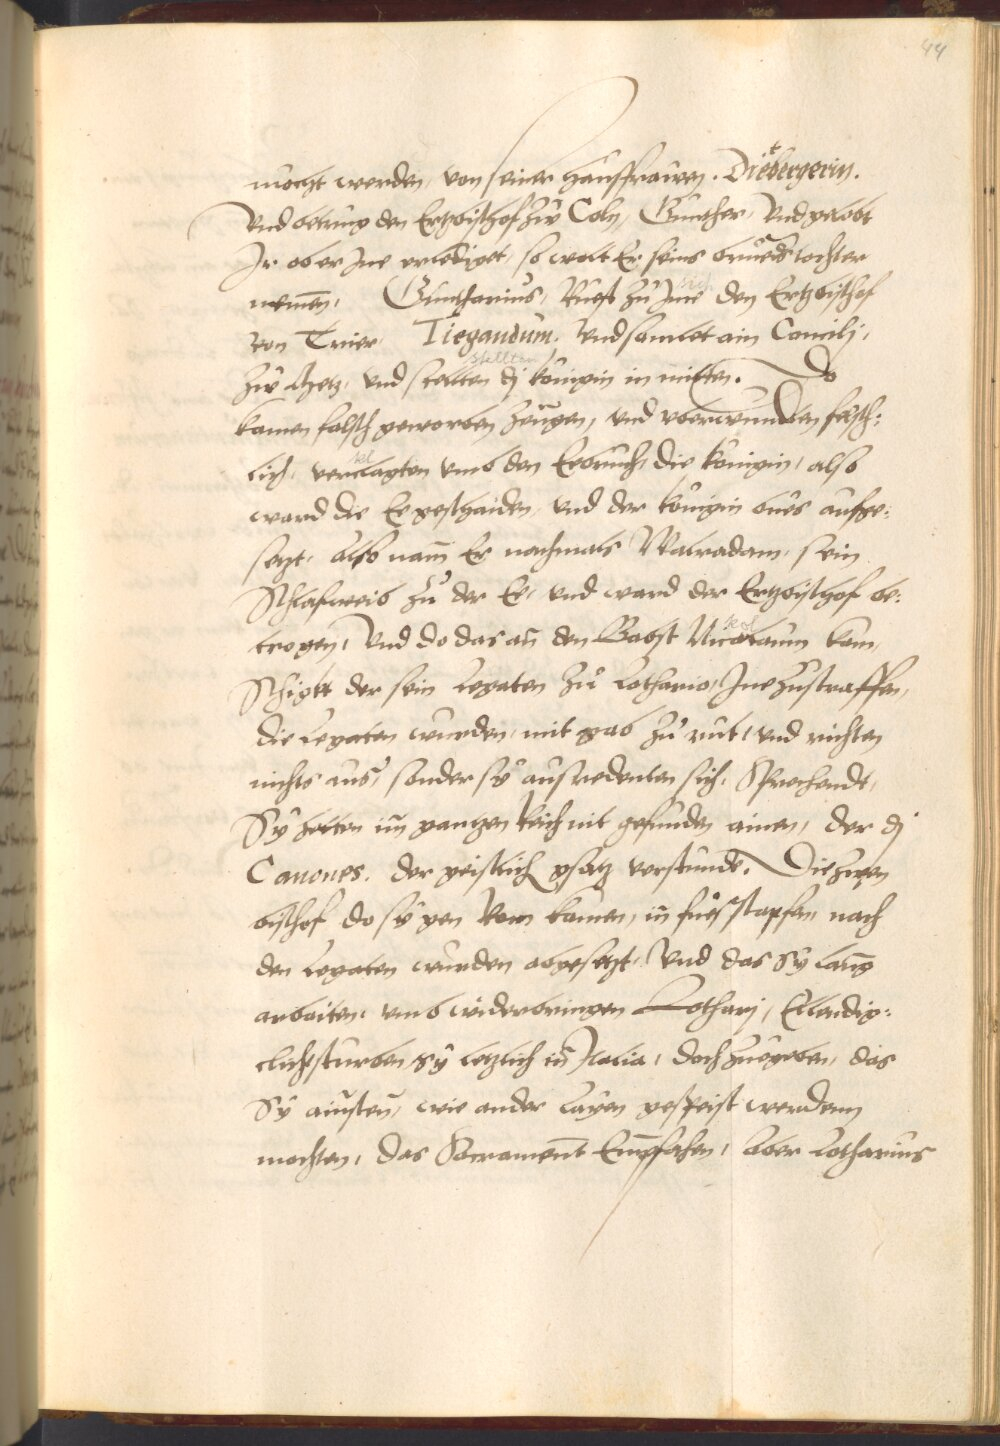 44
mocht werden, von seiner hausfrawen. Dietbergerin.
Vnd betrug den Ertzbischof zu Coln, Gunther, Vnd gelobt
Ir ob er Ine erlediget, so wolt Er seins bruders tochter
nemen. Guntharius, Rueft zu Ime den Ertzbischof
von Trier Tiegandum. Vnd samlet ain Concilj,
zu Metz, Vnd stelten dj konigin in mitten. Do
kamen falsch geworben zeugen, vnd vberwunden felsch:
lich, verclagten vmb den Eebruch, die konigin, also
ward die Ee geschaiden, vnd der konigin bues aufge:
setzt, Also nam Er nachmals Walradam, sein
Schlafweib zu der Ee, vnd ward der Ertzbischof be:
trogen, Vnd do das an den Babst Nicolaum kam,
Schickt der sein Legaten zu Lothario, Ine zustraffen,
die Legaten wurden, mit gab zu nut, vnd richten
nichts aus, sonder sy ausredenten sich, Sprechendt,
Sy hetten im gantzen Reich nit gefunden ainen, der dj
Canones. der geistlich gsatz verstunde. Die zwen
bischof do sy gen Rom kamen, in fuesstapfen nach
den Legaten wurden abgesetzt, Vnd das Sy lang
arbaiten, vmb widerbringen Lotharj, Ellendig:
clich sturben sy letzlich in Italia, doch zuegeben, das
Sy ainsten, wie ander Layen gespeist werdenn
mochten, das Sacrament Empfahen, Aber Lotharius